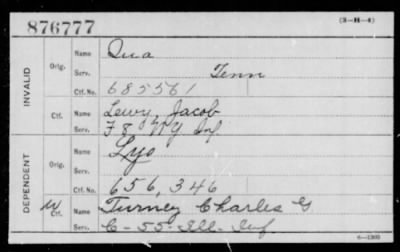 876777
(3-H-4)
INVALID
Orig.
Name Qua
Serv. Tenn
Ctf. No. 685561
Ctf.
Name Lewy, Jacob
Serv. F 8 NY Inf
DEPENDENT
Orig.
Name Lys
Serv.
Ctf. No. 656,346
W Ctf.
Name Turney Charles G
Serv. C-55-Ill-Inf